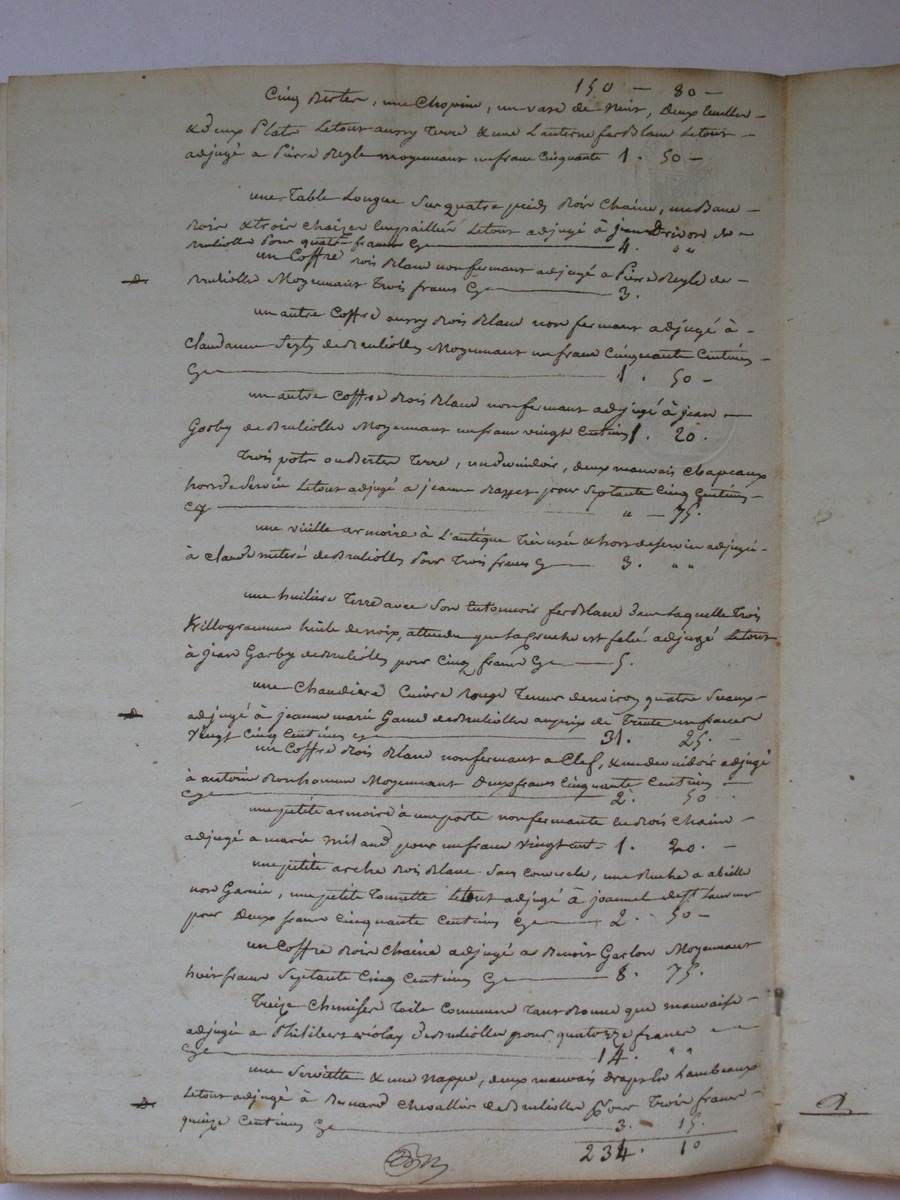 150 — 80 —
Cinq Berter, une Chopine, un vase de nuit, deux Cuiller —
& deux Plats Letout aussy Terre & une Lanterne fer Blanc Letout —
adjugé a Pierre Reyle moyennant un franc Cinquante 1 . 50 —
une Table Longue Sur quatre pieds Bois Chaine, un Banc —
Bois & trois Chaizes Empaillié Letout adjugé à jean Drivon de —
Brulliolle Pour quatre francs Cy 4 . " "
un Coffre Bois Blanc non fermant adjugé a Pierre Reyle de —
Brulliolle Moyennant Trois francs Cy 3 .
un autre Coffre aussy Bois Blanc non fermant adjugé à —
Claudanne de Brulliolles Moyennant un franc Cinquante Centimes —
Cy 1 . 50 —
un autre Coffre Bois Blanc non fermant adjugé à jean —
Gorby de Brulliolle Moyennant un franc vingt Centimes 1 . 20 .
Trois pots ou Berter Terre, un dwindoir, deux mauvais Chapeaux
hors de Servin Letout adjugé a jeanne Razzet pour Septante Cinq Centimes —
Cy " — 75 .
une vieille armoire à L'antique Très usée & hors de servin adjugé —
à Claude de Brulliolles Pour Trois francs Cy 3 . " "
une huiliere Terre avec Son Entonnoir fer Blanc dans Laquelle Trois
Killogrammes huile de noix, attendu que La Cruche est felé adjugé Letout
à jean Gorby de Brulliolles pour Cinq francs Cy 5 .
une Chaudiere Cuivre Rouge Teneur denviron quatre Seaux —
adjugé à jeanne marie Gamd de Brulliolles au prix de Trente un francs
vingt Cinq Centimes cy 31 . 25 . —
un Coffre Bois Blanc non fermant a Clef, & un devuidoir adjugé
à antoine Bonhomme Moyennant Deux francs Cinquante Centimes —
Cy 2 . 50
une petite armoire à une porte non fermante en Bois Chaine —
adjugé a marie mitand pour un franc vingt cent. 1 . 20 . —
une petite arche Bois Blanc San Couvercle, une Ruche a abeille
non Garnie, une petite Tomette Letout adjugé à joannel de St. Laurent
pour Deux francs Cinquante Centimes Cy 2 . 50 —
un Coffre Bois Chaine adjugé a Benoit Garlon Moyennant
huit francs Septante Cinq Centimes Cy 8 . 75 .
Treize Chemises Toile Commune Tant Bonne que mauvaise —
adjugé a Philibert violay de Brulliolles pour quatorze francs —
Cy 14 . " "
une Serviette & une Nappe, deux mauvais draps en Lambeaux
Letout adjugé à Bernard Chevallier de Brulliolle pour Trois francs —
quinze Centimes Cy 3 . 15 .
234 . 10